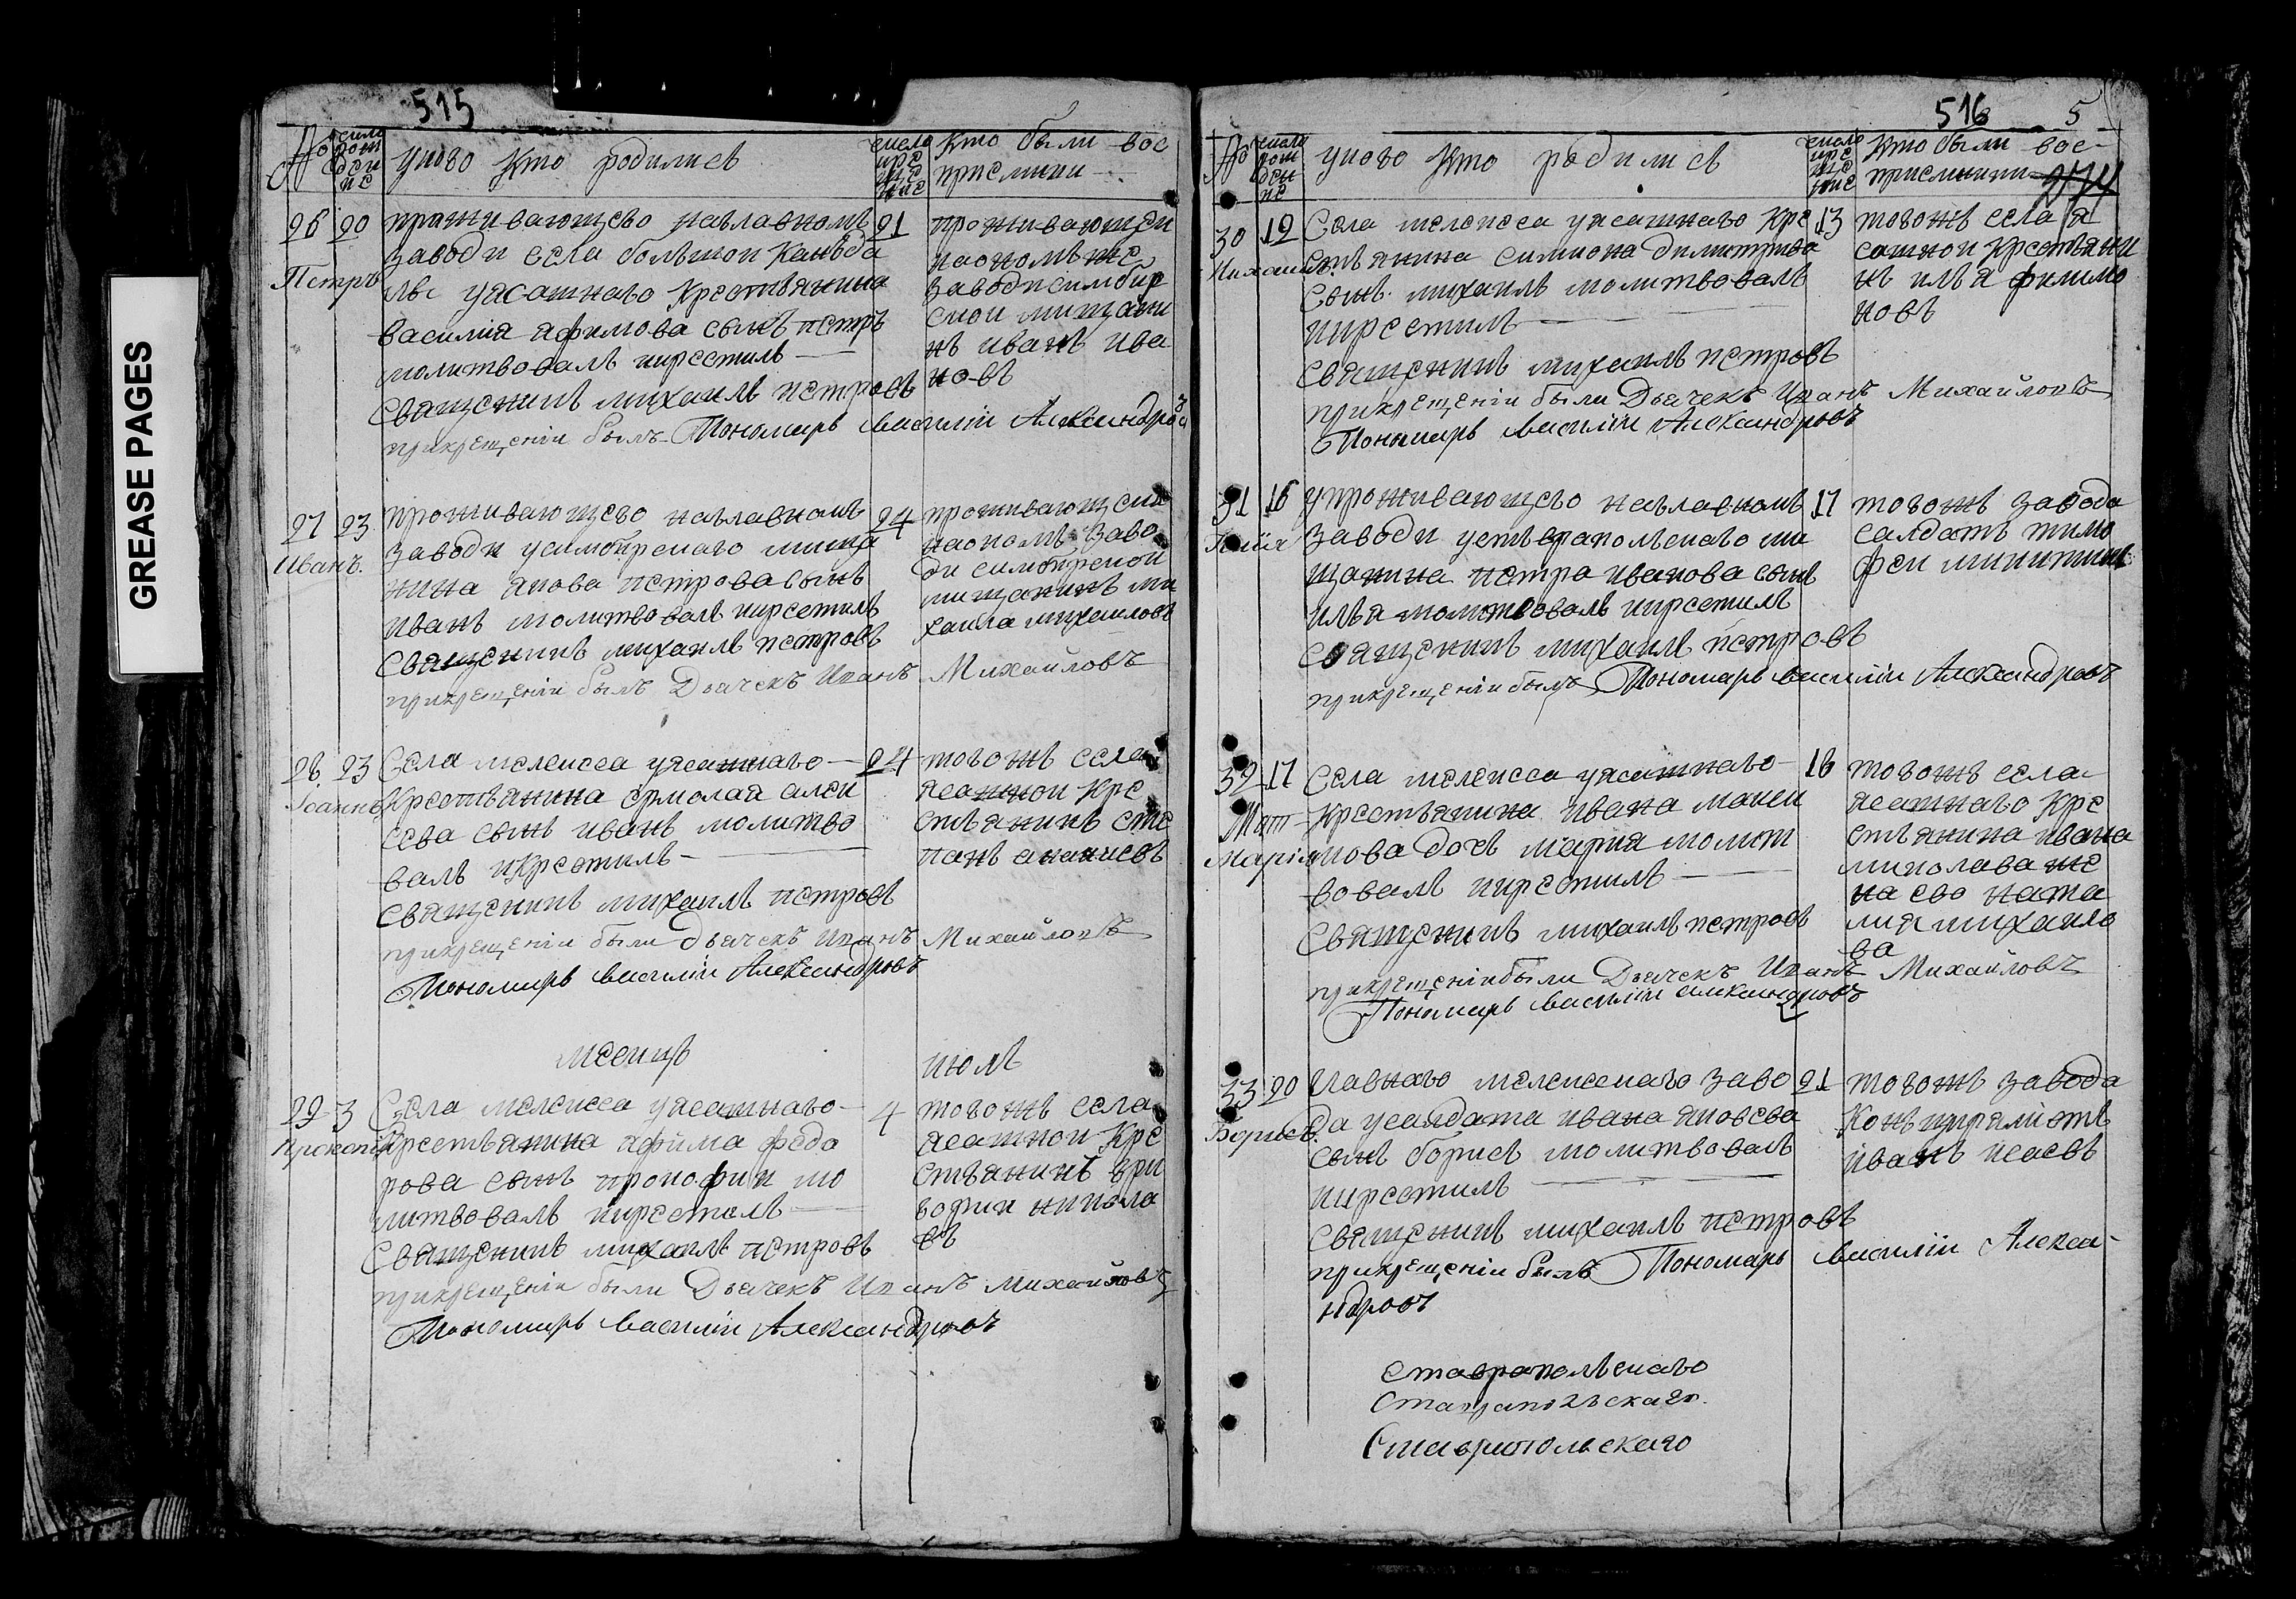 GREASE PAGES
515
№
число рож дени ис
уково кто родились
число кре ще ние
кто были вос
приемники
26 20
Петръ
проживающево наглавномъ
заводи села большои Каньда
лы уясашнаго крестьянина
василия афимова сынъ петръ
молитвовалъ икрестилъ
священикъ михаилъ петровъ
прикрещении былъ Пономарь василии Александровъ
21
проживающеи
наономъже
заводи симбир
скои мищани
нъ иванъ ива
новъ
27 23
Иванъ.
проживающего наглавномъ
заводи усимбирскаго мища
нина якова петрова сынъ
иванъ молитвовалъ икрестилъ
священикъ михаилъ петровъ
прикрещении былъ Дьячекъ Иванъ Михайловъ
24
проживающеи
наономъ заво
ди симбирскои
мищанинъ ми
хаила михаиловъ
28 23
Иоаннъ
Села мелекеса уясашнаго
крестьянина ермолая алек
сева сынъ иванъ молитво
валъ икрестилъ
священикъ михаилъ петровъ
прикрещении были Дьячекъ Иванъ Михайловъ
Пономарь василии Александровъ
24
тогожъ села
ясашнои кре
стьянинъ сте
панъ ананиевъ
месицъ
июль
29 3
Прокопий
Села мелекесса уясашнаго
крестьянина афима федо
рова сынъ прокофии мо
литвовалъ икрестилъ
священикъ михаилъ петровъ
прикрещении были Дьячекъ Иванъ михайловъ
Пономарь василии Александровъ
4
тогожъ села
ясашнои кре
стьянинъ гри
гории никола
въ
516
5
274
№
число рож ден ис
уково кто родились
число кре ще ние
кто были вос-
приемники
30 12
Михаилъ
Села мелекесса уясашнаго кре
стьянина симиона димитрива
сынъ михаилъ молитвовалъ
икрестилъ
священикъ михаилъ петровъ
прикрещении были Дьячекъ Иванъ Михайловъ
Пономарь василии Александровъ
13
тогожъ села я
сашнои крестьяни
нъ илья филимо
новъ
31 16
Илия
упроживающего наглавномъ
заводи уставрапольскаго ми
щанина петра иванова сынъ
илья молитвовалъ икрестилъ
священикъ михаилъ петровъ
прикрещении былъ Пономарь василии Александровъ
17
тогожъ завода
салдатъ тимо
феи микитинъ
32 17
Мат
Мария
Села мелекесса уясашнаго
крестьянина ивана макси
мова дочь мария молит
вовалъ икрестилъ
священикъ михаилъ петровъ
прикрещении были Дьячекъ Иванъ Михайловъ
Пономарь василии александровъ
18
тогожъ села
ясашнаго кре
стьянина ивана
миколава же
на ево ната
лия михаило
ва
33 20
Борисъ.
Главнаго мелекескаго заво
да усалдата ивана яковева
сынъ борисъ молитвовалъ
икрестилъ
священикъ михаилъ петровъ
прикрещении былъ Пономарь василии Алекса-
ндровъ
21
тогожъ завода
Конъцирялистъ
иванъ исаевъ
ставрапольскаго
Ставрапольскаго.
Ставрипольскаго